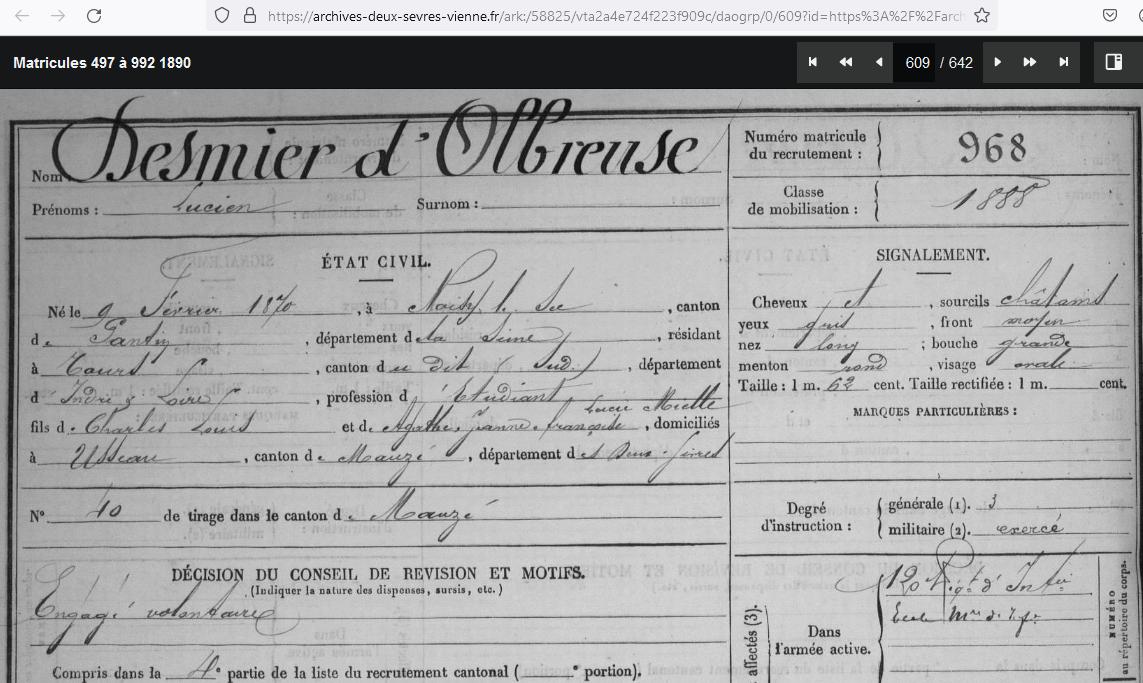 https://archives-deux-sevres-vienne.fr/ark:/58825/vta2a4e724f223f909c/daogrp/0/609?id=https%3A%2F%2Farch
Matricules 497 à 992 1890
609 / 642
Nom: Desmier d'Olbreuse
Prénoms : Lucien Surnom :
Numéro matricule du recrutement : 968
Classe de mobilisation : 1888
ÉTAT CIVIL.
Né le 9 Février 1870, à Noisy le Sec, canton
de Pantin, département de la Seine, résidant
à Tours, canton du dit (Sud), département
d'Indre & Loire, profession d'Etudiant
fils de Charles Louis et de Agathe Jeanne françoise Lucie Miette, domiciliés
à Usseau, canton de Mauzé, département des Deux-Sèvres
N° 40 de tirage dans le canton de Mauzé
DÉCISION DU CONSEIL DE REVISION ET MOTIFS.
(Indiquer la nature des dispenses, sursis, etc.)
Engagé volontaire
Compris dans la 4e partie de la liste du recrutement cantonal ( e portion).
SIGNALEMENT.
Cheveux et, sourcils châtains
yeux gris, front moyen
nez long; bouche grande
menton rond, visage ovale
Taille : 1 m. 62 cent. Taille rectifiée : 1 m. cent.
MARQUES PARTICULIÈRES :
Degré d'instruction :
générale (1). 3
militaire (2). exercé
affectés (3).
Dans l'armée active.
120e Régt d'Infrie
Ecole Mre d'Infie
NUMÉRO
au répertoire du corps.